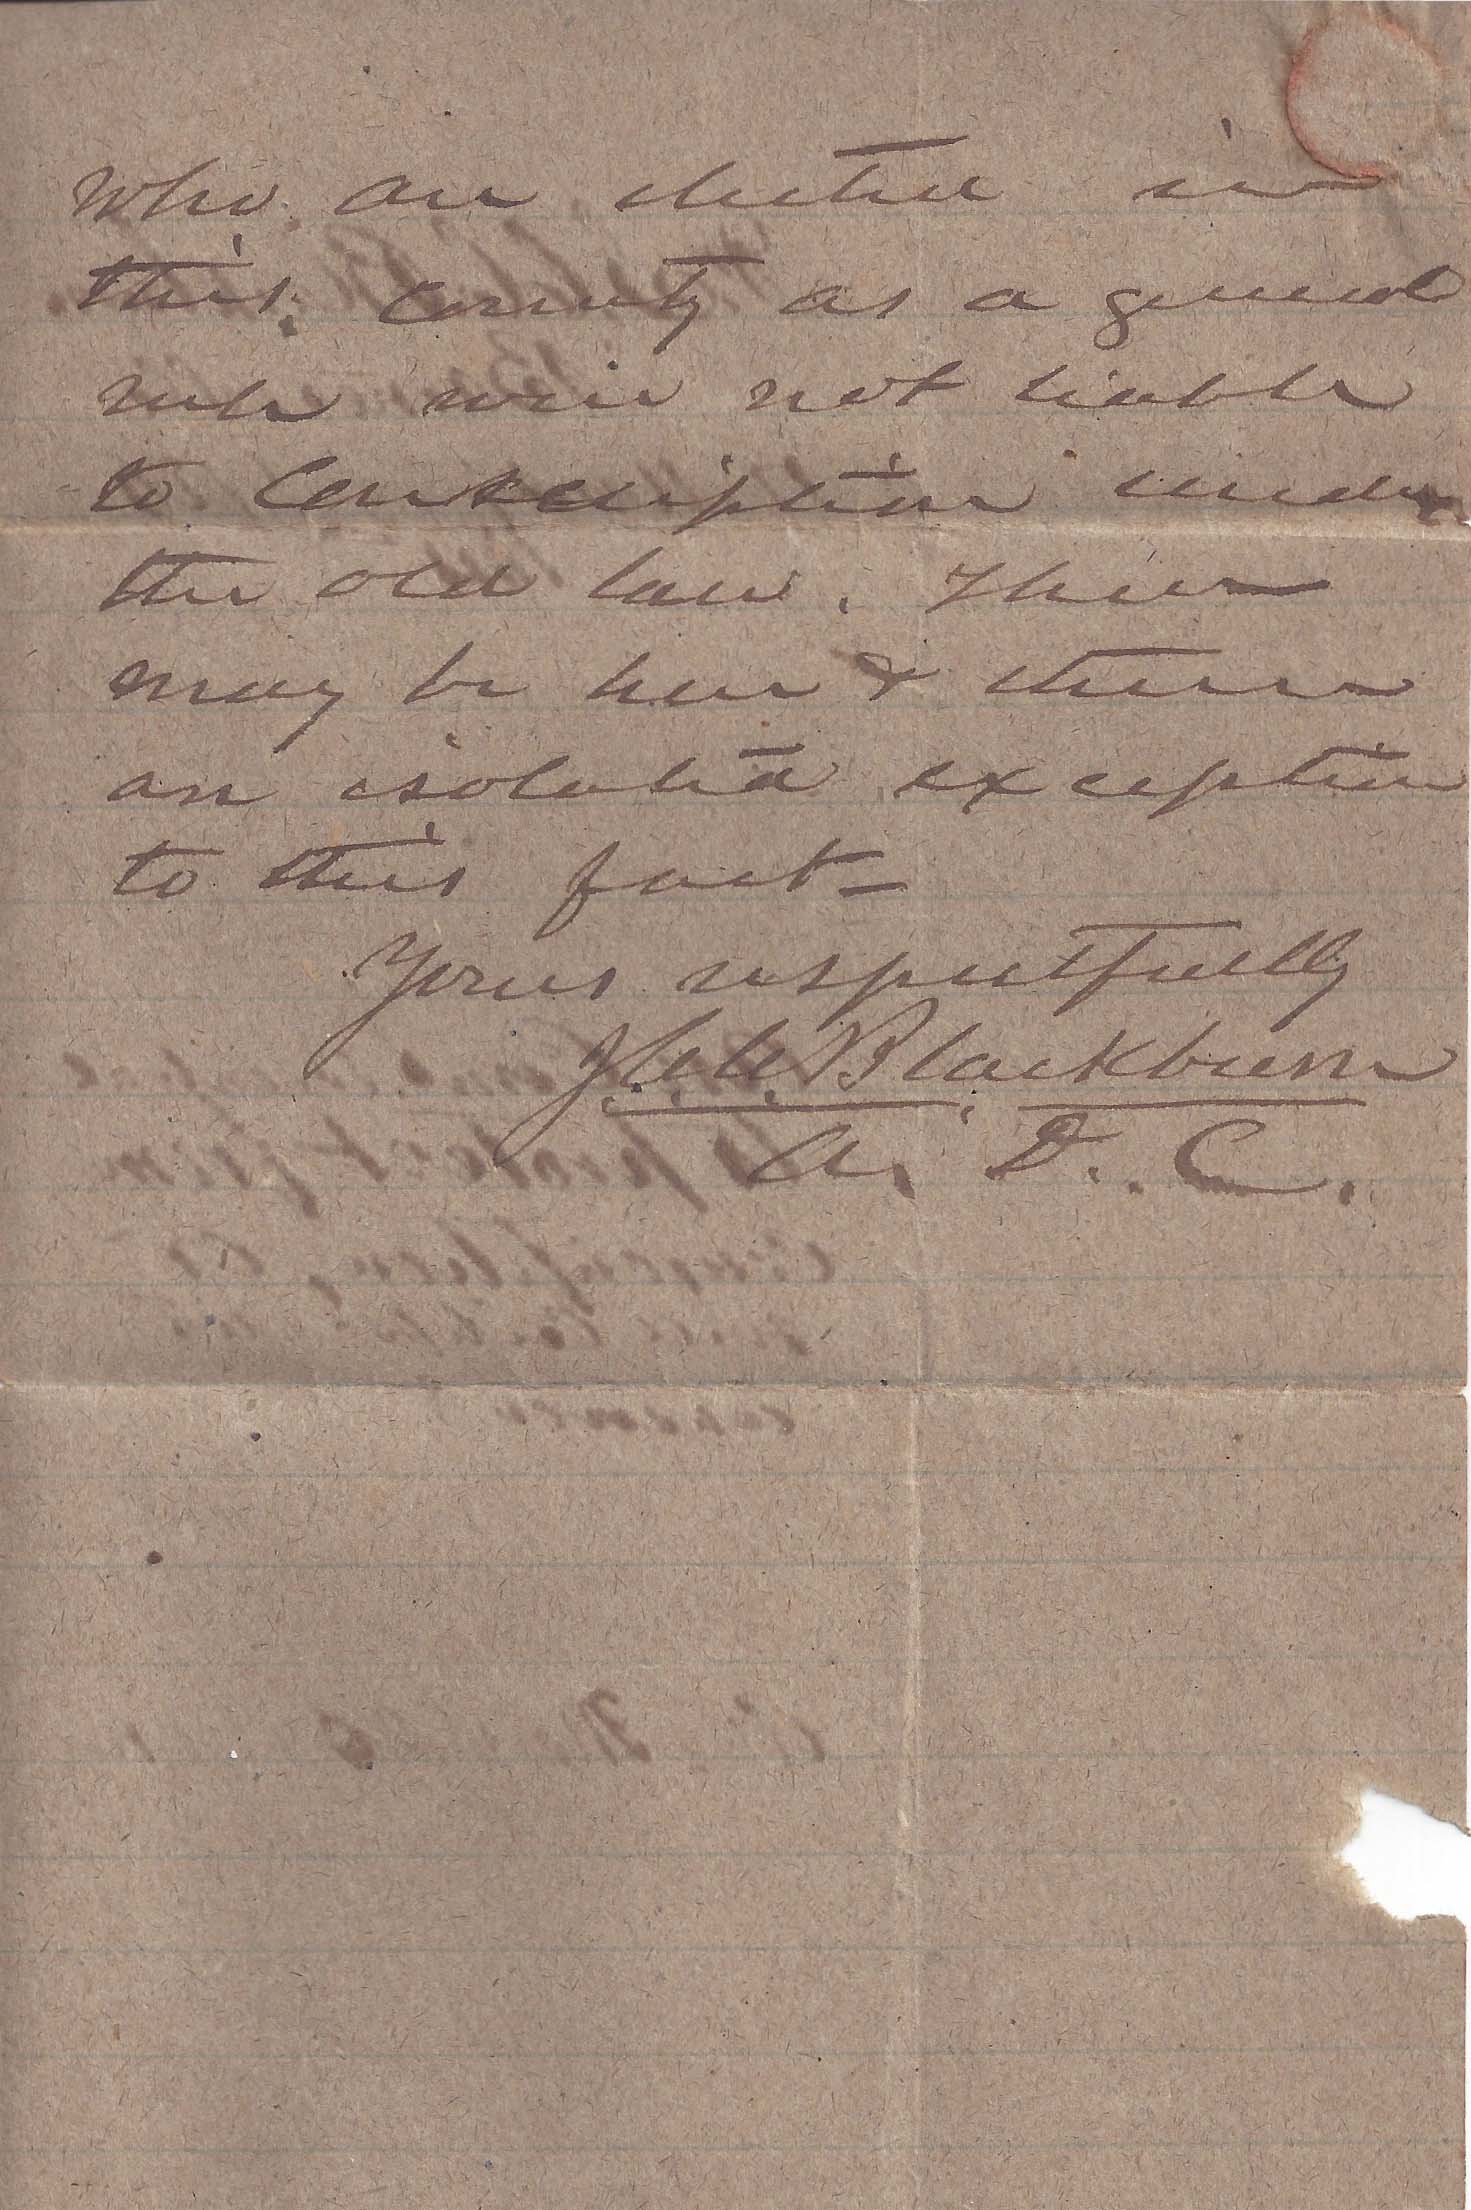 who are elected in
this county as a general
rule were not liable
to Conscription under
the old law. There
may be here & there
an isolated exception
to this fact—
Yours respectfully
J. C. C. Blackburn
A. D. C.